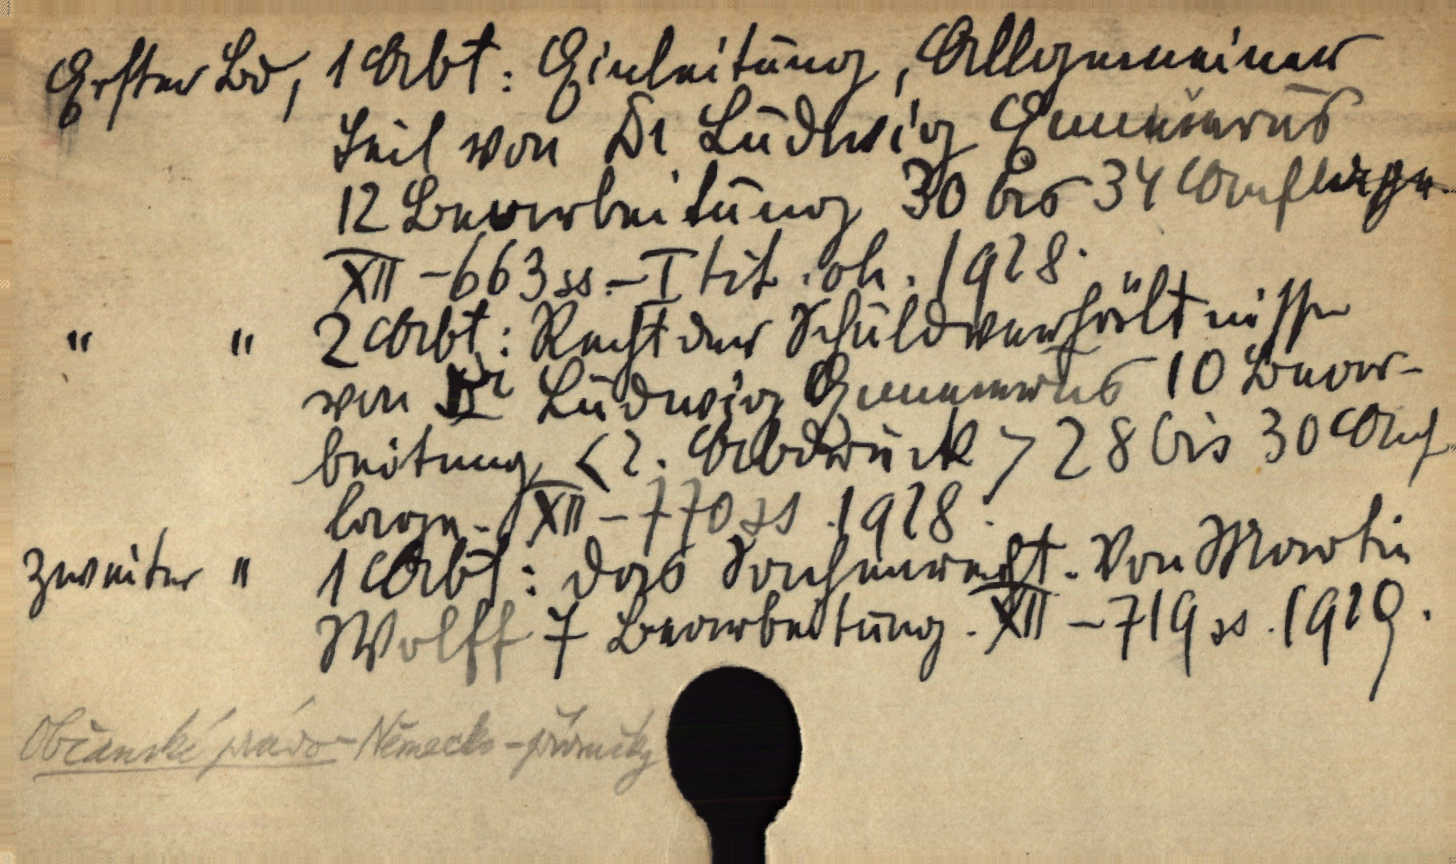 Erster Bd, 1 Abt: Einleitung, Allgemeiner
Teil von Dr Ludwig Enneccerus
12 Bearbeitung 30 bis 34 Auflage.
XII – 663 ss. – I tit. 1928.
" " 2 Abt: Recht der Schuldverhältnisse
von Dr Ludwig Enneccerus 10 Bear-
beitung <2. Abdruck> 28 bis 30 Auf
lage. XII – 770 ss. 1928.
Zweiter " 1 Abt: Das Sachenrecht. Von Martin
Wolff 7 Bearbeitung. XII – 719 ss. 1929.
Občanské právo - Německo - příručky